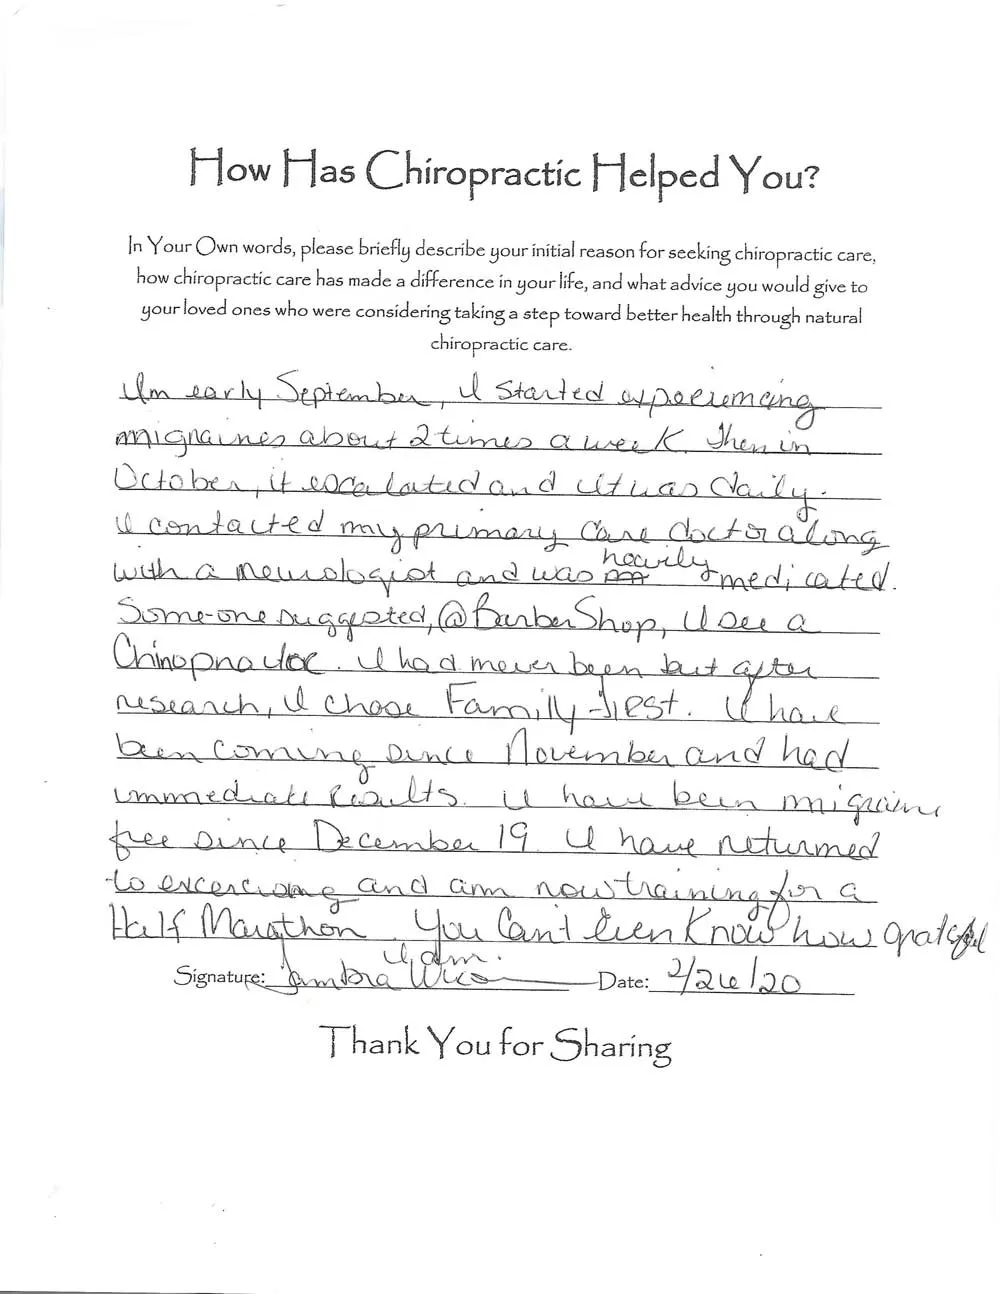 How Has Chiropractic Helped You?
In Your Own words, please briefly describe your initial reason for seeking chiropractic care,
how chiropractic care has made a difference in your life, and what advice you would give to
your loved ones who were considering taking a step toward better health through natural
chiropractic care.
In early September, I started experiencing
migraines about 2 times a week. Then in
October, it escalated and it was daily.
I contacted my primary care doctor along
heavily
with a neurologist and was medicated.
Some-one suggested, @BarberShop, I see a
Chiropractor. I had never been but after
research, I chose Family First. I have
been coming since November and had
immediate results. I have been migraine
free since December 19. I have returned
to excercising and am now training for a
Half Marathon. You Can't Even Know how grateful
I am.
Signature: Date: 2/26/20
Thank You for Sharing